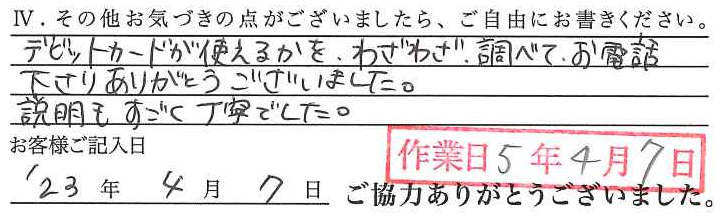 Ⅳ．その他お気づきの点がございましたら、ご自由にお書きください。
デビットカードが使えるかを、わざわざ、調べて、お電話
下さりありがとうございました。
説明もすごく丁寧でした。
お客様ご記入日
作業日5年4月7日
'23年4月7日 ご協力ありがとうございました。